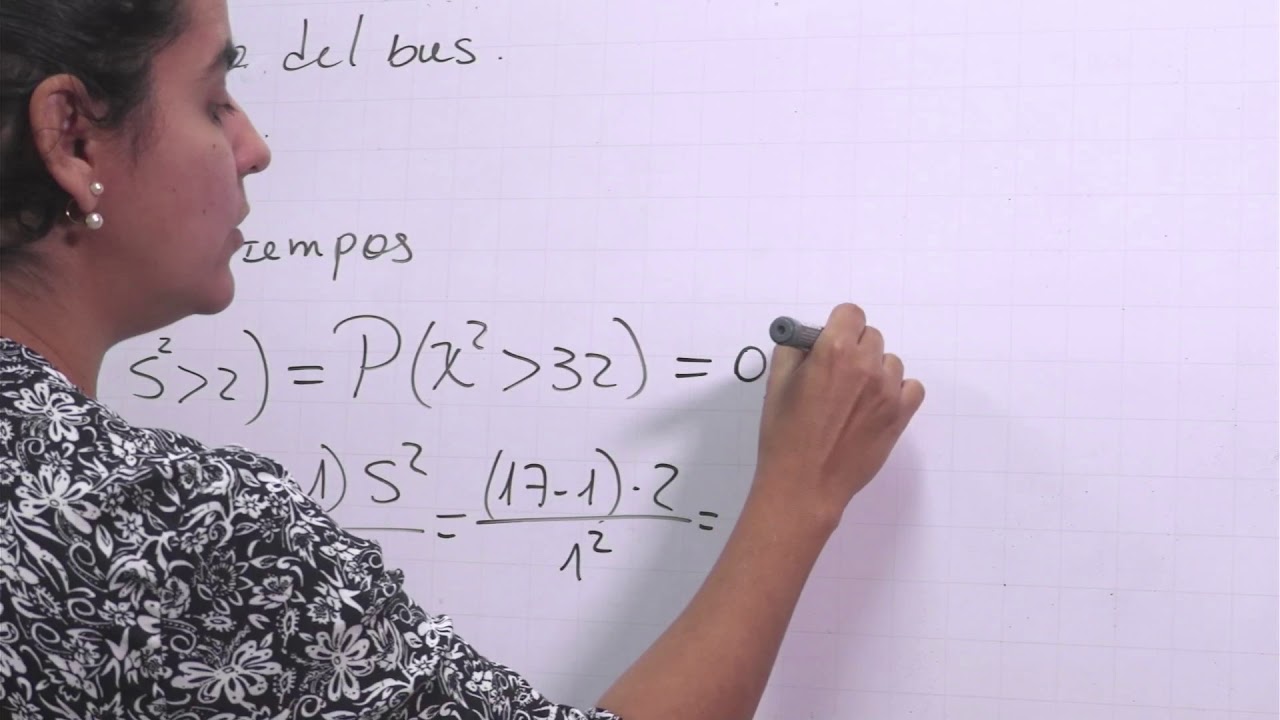 del bus.
S²>2) = P(χ²>32) = 0
1) S² = (17-1)·2 / 1² =